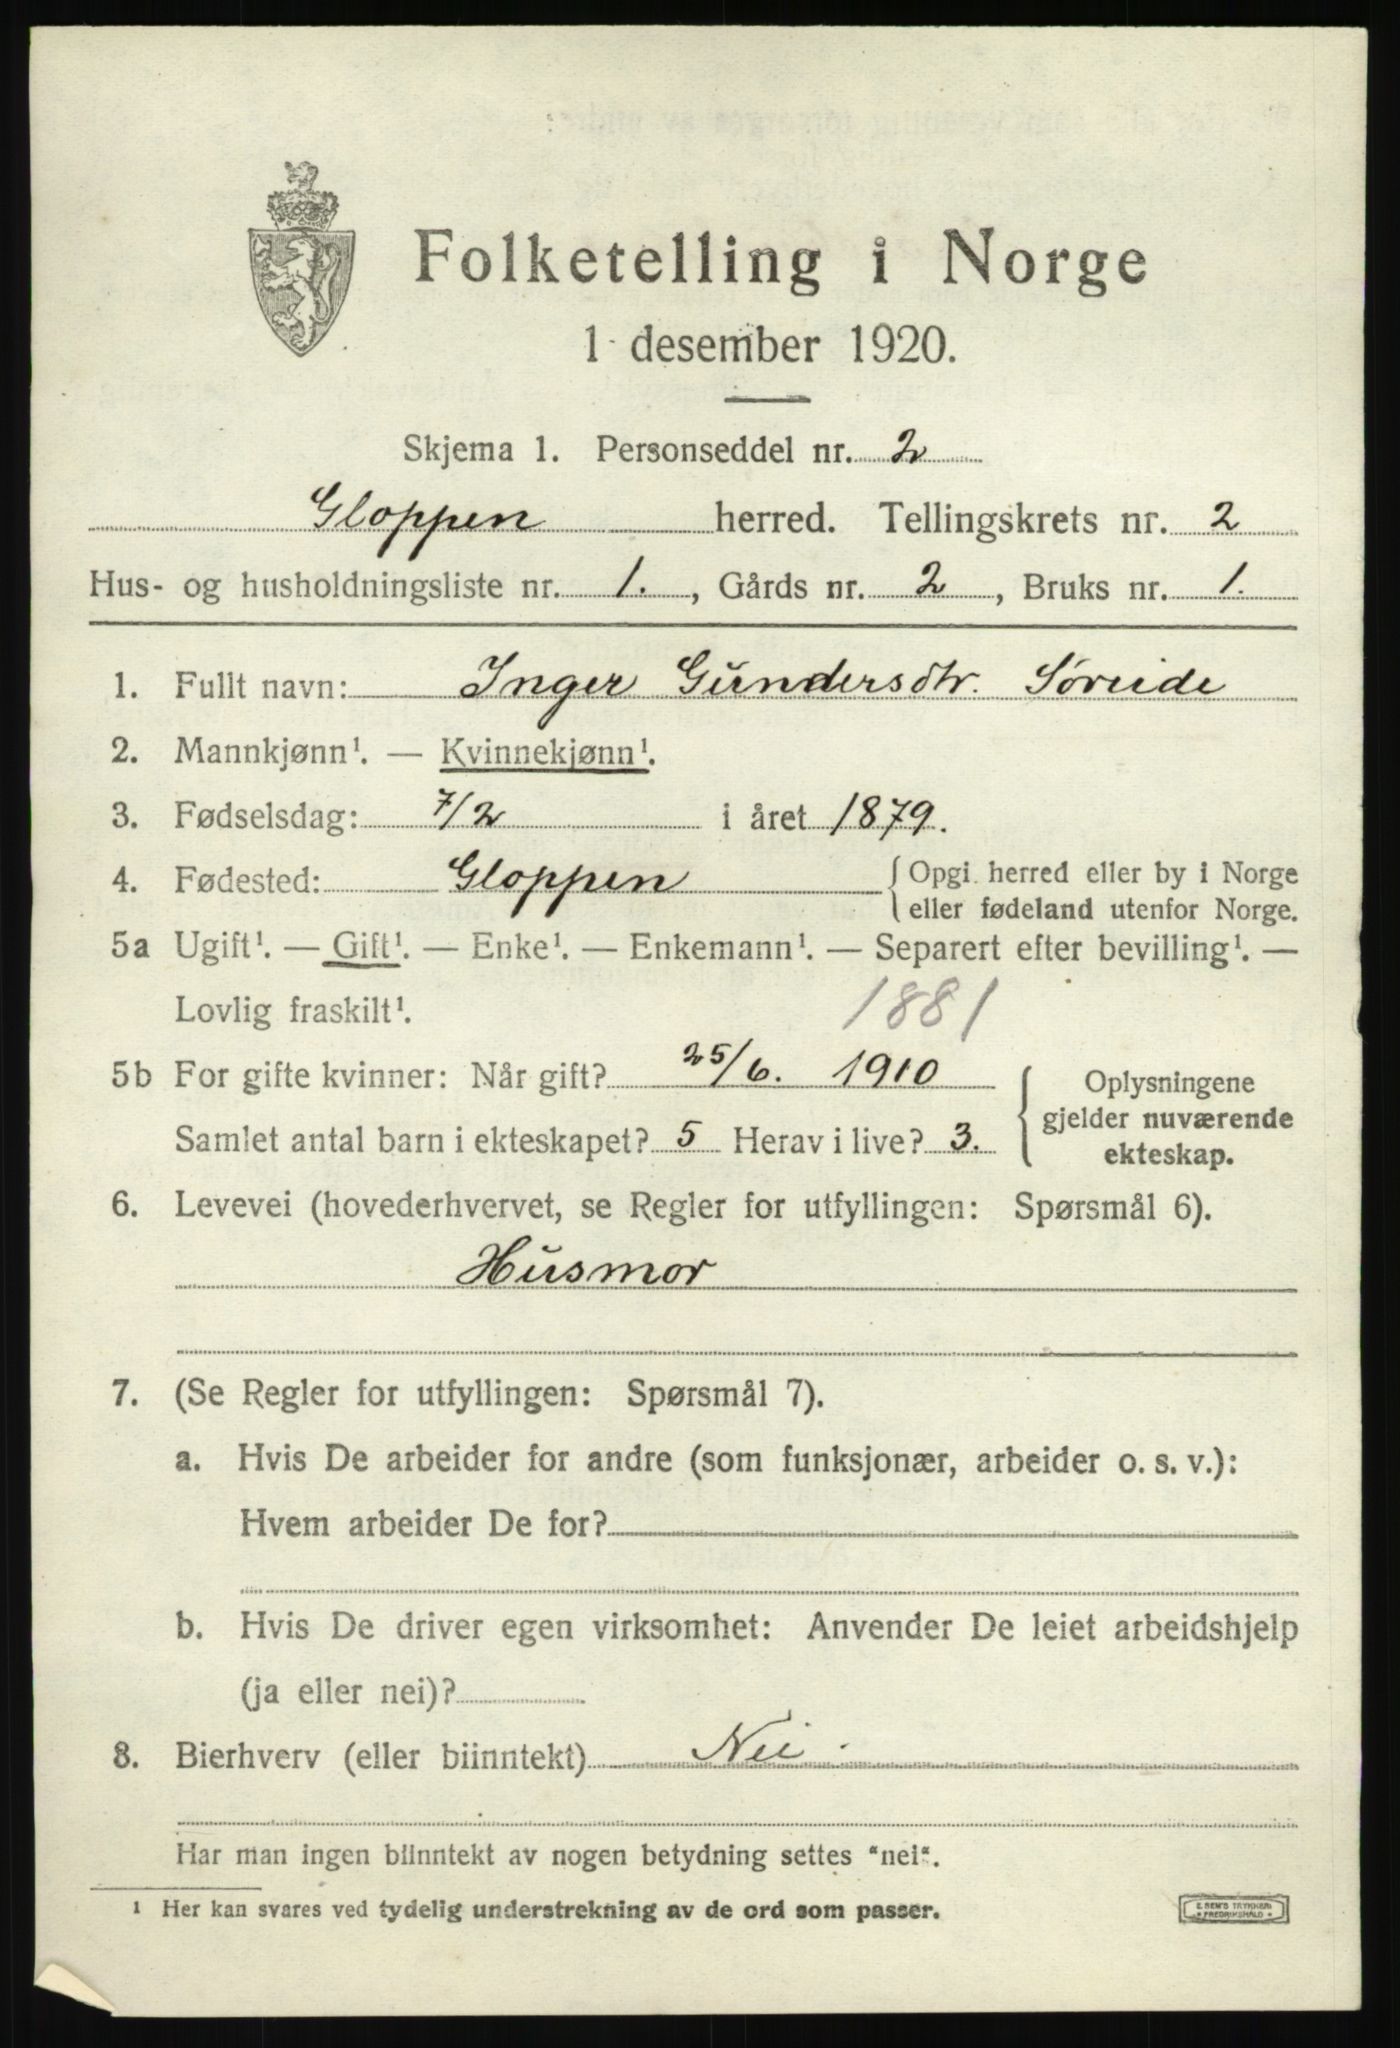 Folketelling i Norge
1 desember 1920.
Skjema 1. Personseddel nr. 2
Gloppen herred. Tellingskrets nr. 2
Hus- og husholdningsliste nr. 1., Gårds nr. 2, Bruks nr. 1.
1. Fullt navn: Inger Gundersdtr. Søreide
2. Mannkjønn¹. — Kvinnekjønn¹.
3. Fødselsdag: 7/2 i året 1879.
4. Fødested: Gloppen { Opgi herred eller by i Norge
eller fødeland utenfor Norge.
5a Ugift¹. — Gift¹. — Enke¹. — Enkemann¹. — Separert efter bevilling¹. —
Lovlig fraskilt¹. 1881
5b For gifte kvinner: Når gift? 25/6. 1910 { Oplysningene
gjelder nuværende
Samlet antal barn i ekteskapet? 5 Herav i live? 3.
ekteskap.
6. Levevei (hovederhvervet, se Regler for utfyllingen: Spørsmål 6).
Husmor
7. (Se Regler for utfyllingen: Spørsmål 7).
a. Hvis De arbeider for andre (som funksjonær, arbeider o. s. v.):
Hvem arbeider De for?
b. Hvis De driver egen virksomhet: Anvender De leiet arbeidshjelp
(ja eller nei)?
8. Bierhverv (eller biinntekt) Nei.
Har man ingen biinntekt av nogen betydning settes "nei".
¹ Her kan svares ved tydelig understrekning av de ord som passer.
E. SEM'S TRYKKERI
FREDRIKSHALD